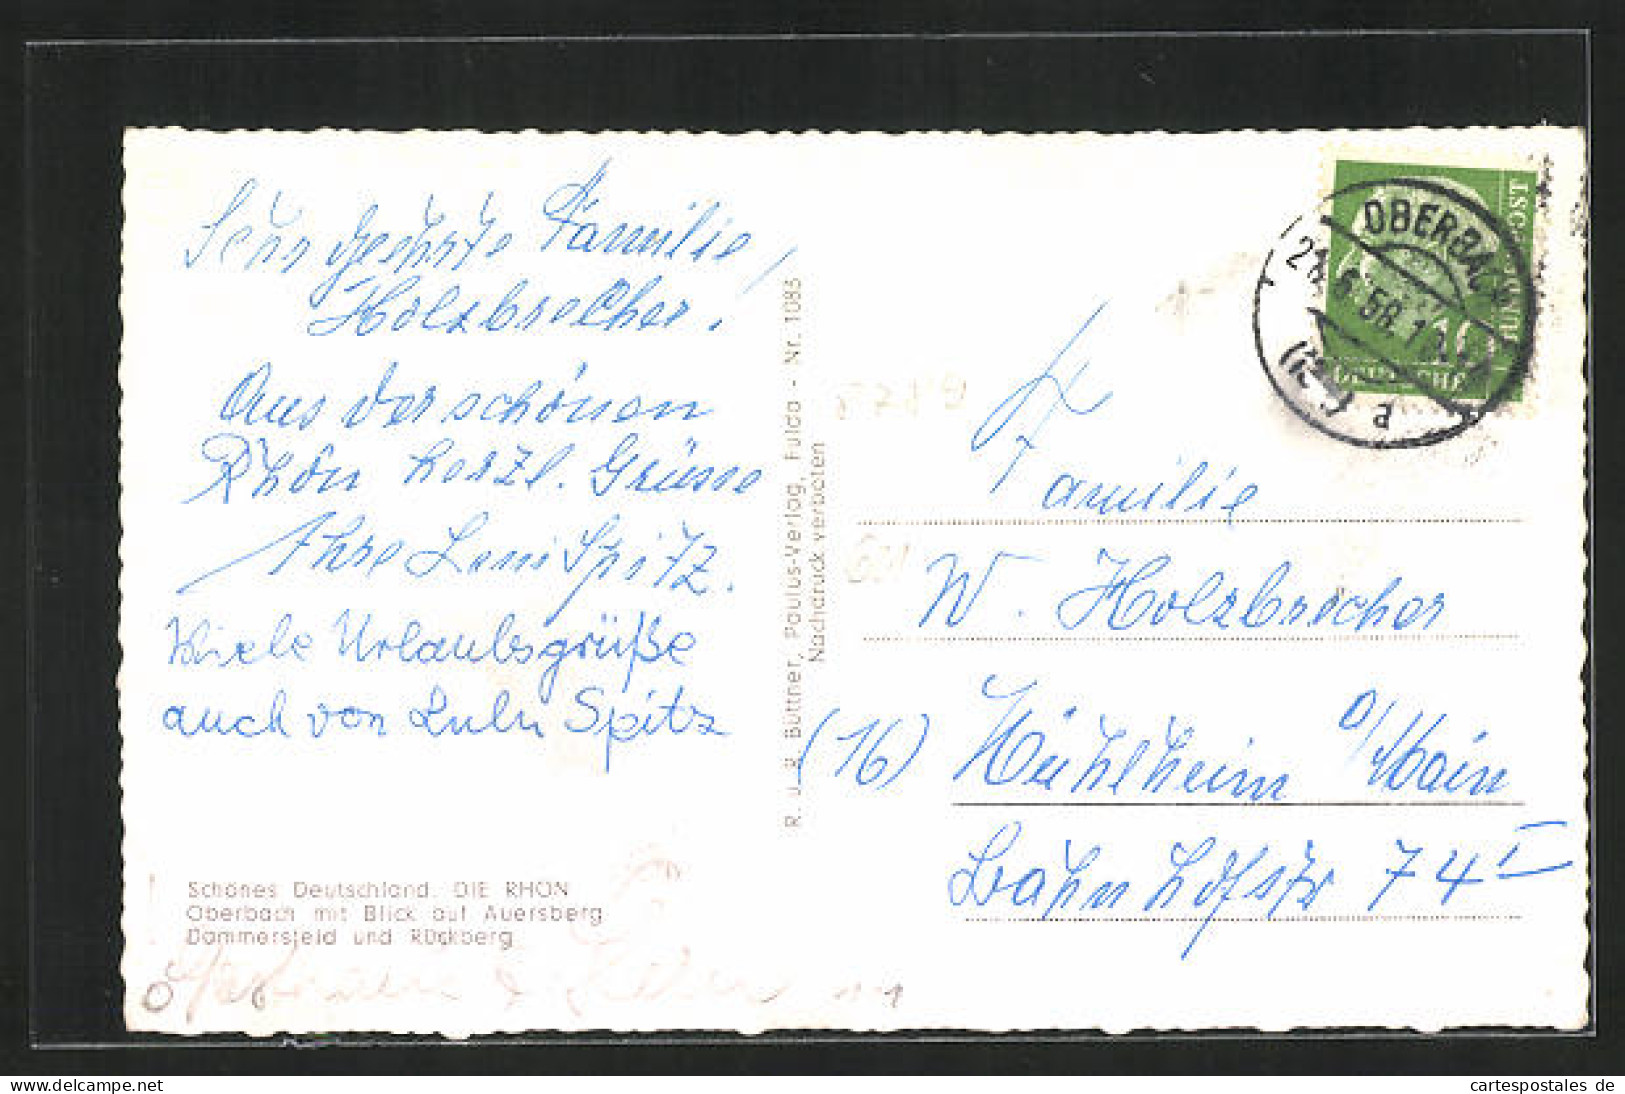 Sehr geehrte Familie
Holzbrecher!
Aus der schönen
Rhön herzl. Grüsse
Ihre Leni Spitz.
Viele Urlaubsgrüße
auch von Lulu Spitz
Schönes Deutschland. DIE RHÖN
Oberbach mit Blick auf Auersberg
Dammersfeld und Rückberg
R. u. R. Büttner, Paulus-Verlag, Fulda - Nr. 1083
Nachdruck verboten
OBERBACH
10
DEUTSCHE
Familie
W. Holzbrecher
(16) Mühlheim a/Main
Bahnhofstr 74 I
ID: 11829324
cartespostales de